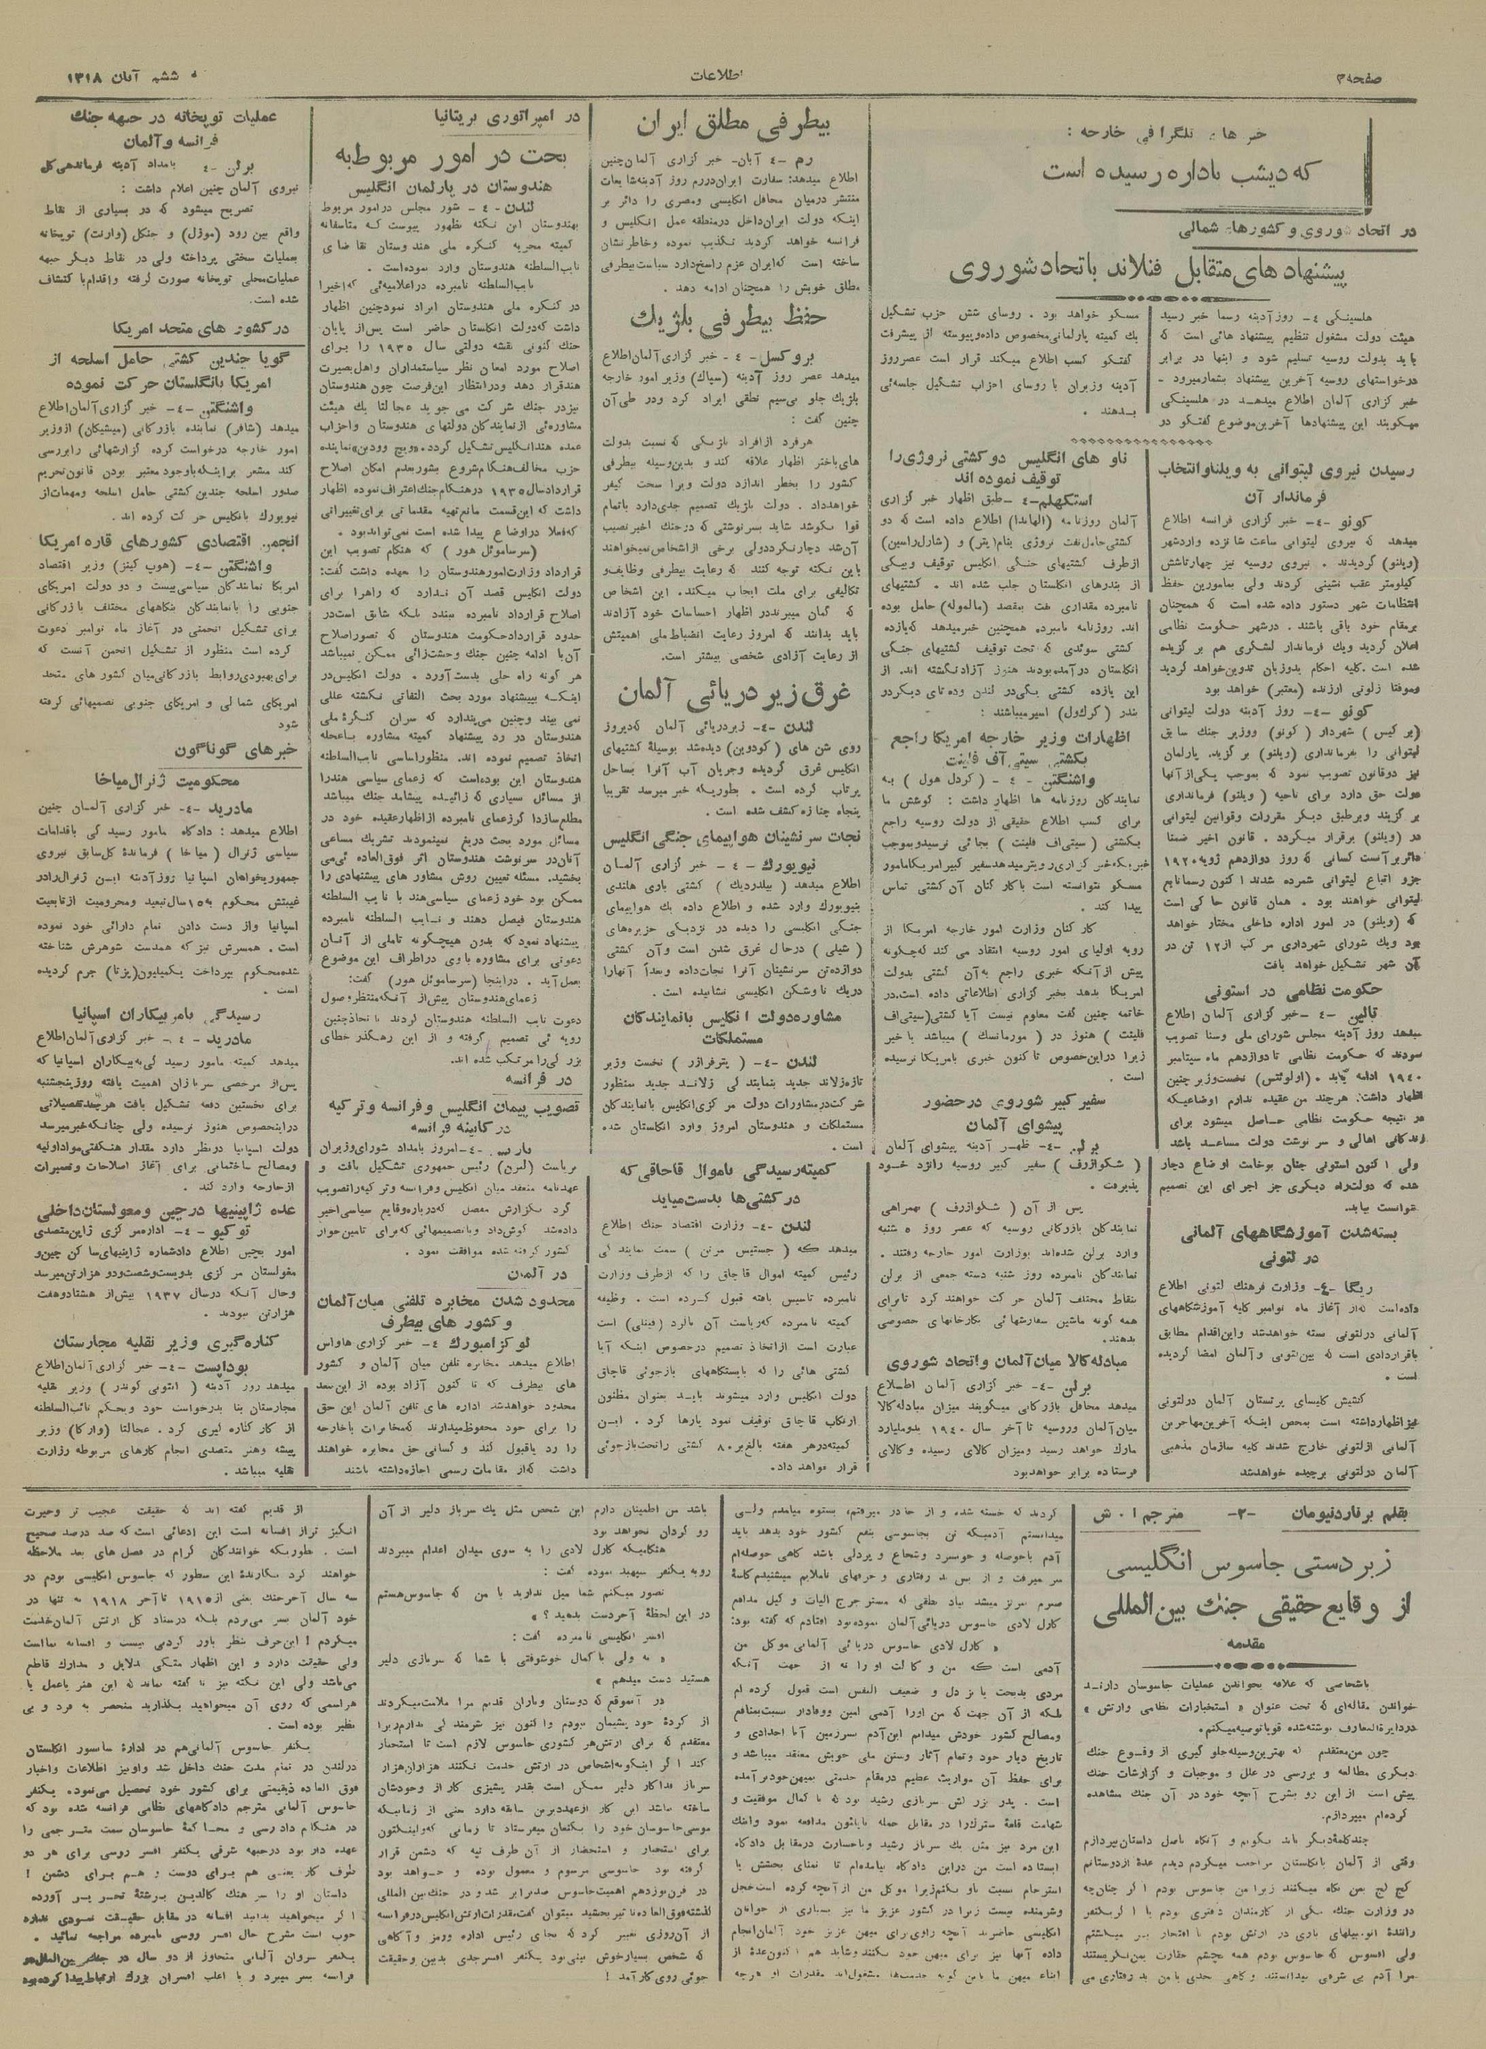 صفحه ۳
اطلاعات
ششم آبان ۱۳۱۸
خبرهای تلگرافی خارجه :
که دیشب باداره رسیده است
در اتحاد شوروی و کشورهای شمالی
پیشنهادهای متقابل فنلاند باتحاد شوروی
هلسینکی -٤- روز آدینه رسما خبر رسید
هیئت دولت مشغول تنظیم پیشنهاد هائی است که
باید بدولت روسیه تسلیم شود و اینها در برابر
درخواستهای روسیه آخرین پیشنهاد بشمار میرود -
خبر گزاری آلمان اطلاع میدهد در هلسینکی
میگویند این پیشنهادها آخرین موضوع گفتگو در
مسکو خواهد بود . روسای شش حزب تشکیل
یك کمیته پارلمانی مخصوص داده و پیوسته از پیشرفت
گفتگو کسب اطلاع میکند قرار است عصر روز
آدینه وزیران با روسای احزاب تشکیل جلسه‌ئی
بدهند .
رسیدن نیروی لیتوانی به ویلنا و انتخاب
فرماندار آن
کونو -٤- خبر گزاری فرانسه اطلاع
میدهد که نیروی لیتوانی ساعت شانزده وارد شهر
(ویلنو) گردیدند . نیروی روسیه نیز چهارتاشش
کیلومتر عقب نشینی کردند ولی بمامورین حفظ
انتظامات شهر دستور داده شده است که همچنان
برمقام خود باقی باشند . درشهر حکومت نظامی
اعلان گردید ویك فرماندار لشگری هم بر گزیده
شده است . کلیه احکام بدوزبان تدوین خواهد گردید
وموقتا زلوتی ارزنده (معتبر) خواهد بود
کونو -٤- روز آدینه دولت لیتوانی
(بر کیس) شهردار (کونو) ووزیر جنك سابق
لیتوانی را بفرمانداری (ویلنو) بر گزید. پارلمان
نیز دوقانون تصویب نمود که بموجب یکی از آنها
دولت حق دارد برای ناحیه (ویلنو) فرمانداری
بر گزیند وبرطبق دیگر مقررات وقوانین لیتوانی
در (ویلنو) برقرار میگردد . قانون اخیر ضمنا
دائر بر آنست کسانی که روز دوازدهم ژویه ۱۹۲۰
جزو اتباع لیتوانی شمرده شدند اکنون رسما تابع
لیتوانی خواهند بود . همان قانون حاکی است
که (ویلنو) در امور اداره داخلی مختار خواهد
بود ویك شورای شهرداری مرکب از ۱۲ تن در
آن شهر تشکیل خواهد یافت
حکومت نظامی در استونی
تالین -٤- خبر گزاری آلمان اطلاع
میدهد روز آدینه مجلس شورای ملی وسنا تصویب
نمودند که حکومت نظامی تا دوازدهم ماه سپتامبر
۱۹٤۰ ادامه یابد . (اولوتس) نخست وزیر چنین
اظهار داشت: هرچند من عقیده ندارم اوضاعیکه
در نتیجه حکومت نظامی حاصل میشود برای
زندگانی اهالی و سر نوشت دولت مساعد باشد
ولی اکنون استونی چنان بوخامت اوضاع دچار
شده که دولت راه دیگری جز اجرای این تصمیم
نتوانست بیابد.
بسته شدن آموزشگاههای آلمانی
در لتونی
ریگا -٤- وزارت فرهنك لتونی اطلاع
داده است که از آغاز ماه نوامبر کلیه آموزشگاههای
آلمانی درلتونی بسته خواهد شد و این اقدام مطابق
باقراردادی است که بین لتونی و آلمان امضا گردیده
است .
کشیش کلیسای پرتستان آلمان درلتونی
نیز اظهار داشته است بمحض اینکه آخرین مهاجرین
آلمانی ازلتونی خارج شدند کلیه سازمان مذهبی
آلمان درلتونی برچیده خواهد شد
ناو های انگلیس دو کشتی نروژی را
توقیف نموده اند
استکهلم -٤- طبق اظهار خبر گزاری
آلمان روزنامه (الهاندا) اطلاع داده است که دو
کشتی حامل نفت نروژی بنام (یتر) و (شارل راسین)
ازطرف کشتیهای جنگی انگلیس توقیف وبیکی
از بندرهای انگلستان جلب شده اند . کشتیهای
نامبرده مقداری نفت بمقصد (مالموله) حامل بوده
اند. روزنامه نامبرده همچنین خبر میدهد که یازده
کشتی سوئدی که تحت توقیف کشتیهای جنگی
انگلستان در آمده بودند هنوز آزاد نگشته اند. از
این یازده کشتی یکی در لندن وده تای دیگر در
بندر (کرك‌ول) اسیر میباشند :
اظهارات وزیر خارجه امریکا راجع
بکشتی سیتی آف فلینت
واشنگتن -٤- ( کردل هول ) به
نمایندگان روزنامه ها اظهار داشت : کوشش ما
برای کسب اطلاع حقیقی از دولت روسیه راجع
بکشتی (سیتی آف فلینت) بجائی نرسید و بموجب
خبریکه خبر گزاری رویتر میدهد سفیر کبیر امریکا مامور
مسکو نتوانسته است با کار کنان آن کشتی تماس
پیدا کند .
کار کنان وزارت امور خارجه امریکا از
رویه اولیای امور روسیه انتقاد می کند که چگونه
پیش از آنکه خبری راجع به آن کشتی بدولت
امریکا بدهد بخبر گزاری اطلاعاتی داده است . در
خاتمه چنین گفت معلوم نیست آیا کشتی (سیتی آف
فلینت) هنوز در (مورمانسك) میباشد یا خیر
زیرا دراین خصوص تا کنون خبری بامریکا نرسیده
است .
سفیر کبیر شوروی در حضور
پیشوای آلمان
برلن -٤- ظهر آدینه پیشوای آلمان
( شکوارزف ) سفیر کبیر روسیه رانزد خود
پذیرفت .
پس از آن ( شکوارزف ) بهمراهی
نمایندگان بازرگانی روسیه که عصر روز ۵ شنبه
وارد برلن شده‌اند بوزارت امور خارجه رفتند .
نمایندگان نامبرده روز شنبه دسته جمعی از برلن
بنقاط مختلف آلمان حرکت خواهند کرد تا برای
همه گونه ماشین سفارشهائی بکارخانهای خصوصی
بدهند .
مبادله کالا میان آلمان و اتحاد شوروی
برلن -٤- خبر گزاری آلمان اطلاع
میدهد محافل بازرگانی میگویند میزان مبادله کالا
میان آلمان وروسیه تا آخر سال ۱۹٤۰ بدو میلیارد
مارك خواهد رسید ومیزان کالای رسیده و کالای
فرستاده برابر خواهد بود
بیطرفی مطلق ایران
رم -٤ آبان- خبر گزاری آلمان چنین
اطلاع میدهد: سفارت ایران در رم روز آدینه شایعات
منتشر درمیان محافل انگلیسی ومصری را دائر بر
اینکه دولت ایران داخل در منطقه عمل انگلیس و
فرانسه خواهد گردید تکذیب نموده و خاطر نشان
ساخته است که ایران عزم راسخ دارد سیاست بیطرفی
مطلق خویش را همچنان ادامه دهد .
حفظ بیطرفی بلژیك
بروکسل -٤- خبر گزاری آلمان اطلاع
میدهد عصر روز آدینه (سپاك) وزیر امور خارجه
بلژیك جلو بی سیم نطقی ایراد کرد ودر طی آن
چنین گفت :
هرفرد ازافراد بلژیکی که نسبت بدولت
های باختر اظهار علاقه کند و بدین وسیله بیطرفی
کشور را بخطر اندازد دولت ویرا سخت کیفر
خواهد داد . دولت بلژیك تصمیم جدی دارد باتمام
قوا بکوشد شاید بسرنوشتی که درجنك اخیر نصیب
آن شد دچار نگردد ولی برخی ازاشخاص نمیخواهند
باین نکته توجه کنند که رعایت بیطرفی وظایف و
تکالیفی برای ملت ایجاب میکند. این اشخاص
که گمان میبرند در اظهار احساسات خود آزادند
باید بدانند که امروز رعایت انضباط ملی اهمیتش
از رعایت آزادی شخصی بیشتر است.
غرق زیر دریائی آلمان
لندن -٤- زیردریائی آلمان که دیروز
روی شن های (کودوین) دیده شد بوسیلۀ کشتیهای
انگلیس غرق گردیده وجریان آب آنرا بساحل
پرتاب کرده است . بطوریکه خبر میرسد تقریبا
پنجاه جنازه کشف شده است .
نجات سرنشینان هواپیمای جنگی انگلیس
نیویورك -٤- خبر گزاری آلمان
اطلاع میدهد (بیلدردیك) کشتی باری هلندی
بنیویورك وارد شده و اطلاع داده یك هواپیمای
جنگی انگلیسی را دیده در نزدیکی جزیره‌های
(شیلی) درحال غرق شدن است وآن کشتی
دوازده تن سرنشینان آنرا نجات داده وبعداً آنهارا
در یك ناوشکن انگلیسی نشانیده است .
مشاوره دولت انگلیس بانمایندگان
مستملکات
لندن -٤- (پترفرازر) نخست وزیر
تازه زلاند جدید بنمایندگی زلاند جدید بمنظور
شرکت درمشاورات دولت مرکزی انگلیس بانمایندگان
مستملکات و هندوستان امروز وارد انگلستان شده
است .
کمیته رسیدگی باموال قاچاقی که
درکشتی‌ها بدست میاید
لندن -٤- وزارت اقتصاد جنك اطلاع
میدهد که ( جستیس مرتن ) سمت نمایندگی
رئیس کمیته اموال قاچاق را که ازطرف وزارت
نامبرده تاسیس یافته قبول کرده است . وظیفه
کمیته نامبرده که ریاست آن بالرد (فینلی) است
عبارت است ازاتخاذ تصمیم درخصوص اینکه آیا
کشتی هائی را که بایستگاههای بازجوئی قاچاق
دولت انگلیس وارد میشوند باید بعنوان مظنون
ارتکاب قاچاق توقیف نمود یارها کرد . این
کمیته درهر هفته بالغ بر ۸۰ کشتی را تحت بازجوئی
قرار خواهد داد.
در امپراتوری بریتانیا
بحث در امور مربوط به
هندوستان در پارلمان انگلیس
لندن -٤- شور مجلس درامور مربوط
بهندوستان این نکته بظهور پیوست که متاسفانه
کمیته مجریه کنگره ملی هندوستان تقاضای
نایب السلطنه هندوستان وارد نموده است .
نایب السلطنه نامبرده دراعلامیه‌ئی که اخیرا
در کنگره ملی هندوستان ایراد نمود چنین اظهار
داشت که دولت انگلستان حاضر است پس از پایان
جنك کنونی نقشه دولتی سال ۱۹۳۵ را برای
اصلاح مورد امعان نظر سیاستمداران واهل بصیرت
هند قرار دهد ودرانتظار این فرصت چون هندوستان
نیز در جنك شرکت می جوید عجالتا یك هیئت
مشاوره‌ئی ازنمایندگان دولتهای هندوستان واحزاب
عمده هند انگلیس تشکیل گردد. «ویج وودبن» نماینده
حزب مخالف هنگام شروع بشور بعدم امکان اصلاح
قرارداد سال ۱۹۳۵ درهنگام جنك اعتراف نموده اظهار
داشت که این قسمت مانع تهیه مقدماتی برای تغییراتی
که فعلا دراوضاع پیدا شده است نمی تواند بود .
(سرساموئل هور) که هنگام تصویب این
قرارداد وزارت امورهندوستان را بعهده داشت گفت:
دولت انگلیس قصد آن ندارد که راهرا برای
اصلاح قرارداد نامبرده ببندد بلکه شایق است در
حدود قرارداد حکومت هندوستان که تصور اصلاح
آن با ادامه چنین جنك وحشت زائی ممکن نمیباشد
هر گونه راه حلی بدست آورد . دولت انگلیس در
اینکه بپیشنهاد مورد بحث التفاتی نگشته عللی
نمی بیند وچنین می‌پندارد که سران کنگرۀ ملی
هندوستان در رد پیشنهاد کمیته مشاوره باعجله
اتخاذ تصمیم نموده اند. منظوراساسی نایب السلطنه
هندوستان این بوده است که زعمای سیاسی هندرا
از مسائل بسیاری که زائیده پیشامد جنك میباشد
مطلع سازد اگر زعمای نامبرده ازاظهار عقیده خود در
مسائل مورد بحث دریغ نمینمودند تشریك مساعی
آنان درسرنوشت هندوستان اثر فوق العاده ئی می
بخشید. مسئله تعیین روش مشاوره های پیشنهادی را
ممکن بود خود زعمای سیاسی هند با نایب السلطنه
هندوستان فیصل دهند و نایب السلطنه نامبرده
پیشنهاد نمود که بدون هیچگونه تاملی از آنان
دعوتی برای مشاوره باوی دراطراف این موضوع
بعمل آید . دراینجا (سرساموئل هور) گفت:
زعمای هندوستان پیش از آنکه منتظر وصول
دعوت نایب السلطنه هندوستان گردند با اتخاذ چنین
رویه ئی تصمیم گرفته و از این رهگذر خطای
بزرگی را مرتکب شده اند.
در فرانسه
تصویب پیمان انگلیس و فرانسه و ترکیه
در کابینه فرانسه
پاریس -٤- امروز بامداد شورای وزیران
بریاست (لبرن) رئیس جمهوری تشکیل یافت و
عهدنامه منعقد میان انگلیس وفرانسه وترکیه را تصویب
کرد بگزارش مفصل که درباره وقایع سیاسی اخیر
داده شد گوش داد وباتصمیمهائی که برای تامین حوایج
کشور گرفته شده موافقت نمود .
در آلمان
محدود شدن مخابره تلفنی میان آلمان
و کشور های بیطرف
لوکزامبورك -٤- خبر گزاری هاواس
اطلاع میدهد مخابره تلفن میان آلمان و کشور
های بیطرف که تا کنون آزاد بوده از این ببعد
محدود خواهد شد اداره های تلفن آلمان این حق
را برای خود محفوظ میدارند که مخابرات باخارجه
را رد یا قبول کند و کسانی حق مخابره خواهند
داشت که از مقامات رسمی اجازه داشته باشند
عملیات توپخانه در جبهه جنك
فرانسه و آلمان
برلن -٤- بامداد آدینه فرماندهی کل
نیروی آلمان چنین اعلام داشت :
تصریح میشود که در بسیاری از نقاط
واقع بین رود (موزل) و جنگل (وارنت) توپخانه
بعملیات سختی پرداخته ولی در نقاط دیگر جبهه
عملیات محلی توپخانه صورت گرفته و اقدام با کتشاف
شده است.
درکشور های متحد امریکا
گویا چندین کشتی حامل اسلحه از
امریکا بانگلستان حرکت نموده
واشنگتن -٤- خبر گزاری آلمان اطلاع
میدهد (شافر) نماینده بازرگانی (میشیگان) ازوزیر
امور خارجه درخواست کرده گزارشهائی را بررسی
کند مشعر براینکه باوجود معتبر بودن قانون تحریم
صدور اسلحه چندین کشتی حامل اسلحه ومهمات از
نیویورك بانگلیس حرکت کرده اند .
انجمن اقتصادی کشورهای قاره امریکا
واشنگتن -٤- (هوپ کینز) وزیر اقتصاد
امریکا نمایندگان سیاسی بیست و دو دولت امریکای
جنوبی را با نمایندگان بنگاههای مختلف بازرگانی
برای تشکیل انجمنی در آغاز ماه نوامبر دعوت
کرده است منظور از تشکیل انجمن آنست که
برای بهبودی روابط بازرگانی میان کشور های متحد
امریکای شمالی و امریکای جنوبی تصمیمهائی گرفته
شود
خبرهای گوناگون
محکومیت ژنرال میاخا
مادرید -٤- خبر گزاری آلمان چنین
اطلاع میدهد : دادگاه مامور رسیدگی باقدامات
سیاسی ژنرال (میاخا) فرماندۀ کل سابق نیروی
جمهوریخواهان اسپانیا روز آدینه این ژنرال رادر
غیبتش محکوم به ۱۵ سال تبعید ومحرومیت ازتابعیت
اسپانیا واز دست دادن تمام دارائی خود نموده
است . همسرش نیز که همدست شوهرش شناخته
شده محکوم بپرداخت یکمیلیون (پزتا) جرم گردیده
است .
رسیدگی بامر بیکاران اسپانیا
مادرید -٤- خبر گزاری آلمان اطلاع
میدهد کمیته مامور رسیدگی به بیکاران اسپانیا که
پس از مرخصی سربازان اهمیت یافته روز پنجشنبه
برای نخستین دفعه تشکیل یافت هرچند تفصیلاتی
دراینخصوص هنوز نرسیده ولی چنانکه خبر میرسد
دولت اسپانیا درنظر دارد مقدار هنگفتی مواد اولیه
ومصالح ساختمانی برای آغاز اصلاحات وتعمیرات
ازخارجه وارد کند .
عده ژاپینیها درچین و مغولستان داخلی
توکیو -٤- اداره مرکزی ژاپن متصدی
امور بچین اطلاع داد شماره ژاپینیهای ساکن چین و
مغولستان مرکزی بدویست و شصت و دو هزار تن میرسد
وحال آنکه درسال ۱۹۳۷ بیش از هشتاد و هفت
هزارتن نبودند .
کناره گیری وزیر نقلیه مجارستان
بوداپست -٤- خبر گزاری آلمان اطلاع
میدهد روز آدینه ( انتونی کوندر ) وزیر نقلیه
مجارستان بنا بدرخواست خود وبحکم نائب السلطنه
از کار کناره گیری کرد . عجالتا (وارگا) وزیر
پیشه وهنر متصدی انجام کارهای مربوطه وزارت
نقلیه میباشد .
بقلم برناردنیومان -۲- مترجم ا . ش
زبردستی جاسوس انگلیسی
از وقایع حقیقی جنك بین المللی
مقدمه
باشخاصی که علاقه بخواندن عملیات جاسوسان دارند
خواندن مقاله‌ای که تحت عنوان « استخبارات نظامی وارتش »
در دایرة المعارف نوشته شده قویا توصیه میکنم .
چون من معتقدم که بهترین وسیله جلوگیری از وقوع جنك
دیگری مطالعه و بررسی در علل و موجبات و گزارشات جنك
پیش است از این رو بشرح آنچه خود در آن جنك مشاهده
کرده‌ام میپردازم.
چند کلمۀ دیگر باید بگویم و آنگاه باصل داستان بپردازم
وقتی از آلمان بانگلستان مراجعت میکردم دیدم عدۀ ازدوستانم
کج کج بمن نگاه میکنند زیرا من جاسوس بودم اگر چنان چه
در وزارت جنك یکی از کارمندان دفتری بودم یا اگر یکنفر
رانندۀ اتومبیلهای باری در ارتش بودم با افتخار بسر میبردم
ولی افسوس که جاسوس بودم همه بچشم حقارت بمن نگریستند
مرا آدم بی شرفی میدانستند و گاهی بحدی بامن بد رفتاری می
کردند که خسته شده و از جا در میرفتم، بستوه میامدم ولی
میدانستم آدمیکه تن بجاسوسی بنفع کشور خود بدهد باید
آدم باحوصله و خونسرد وشجاع و پردلی باشد گاهی حوصله‌ام
سر میرفت و از بس بد رفتاری و حرفهای ناملایم میشنیدم کاسۀ
صبرم لبریز میشد بیاد نطقی که مستر جرج الیات وکیل مدافع
کارل لادی جاسوس دریائی آلمان نموده بود افتادم که گفته بود:
« کارل لادی جاسوس دریائی آلمانی موکل من
آدمی است که من وکالت او را نه از جهت آنکه
مردی بدبخت یا بزدل و ضعیف النفس است قبول کرده ام
بلکه از آن جهت که من اورا آدمی امین ووفادار نسبت بمنافع
ومصالح کشور خودش میدانم این آدم سرزمین آباء اجدادی و
تاریخ دیار خود وتمام آثار وسنن ملی خویش معتقد میباشد و
برای حفظ آن مواریث عظیم درمقام خدمتی بمیهن خود بر آمده
است . پدر بزرگش سربازی رشید بود که با کمال موفقیت و
شهامت قلعۀ سترك را در مقابل حمله ناپلئون مدافعه نمود واینك
این مرد نیز مثل یك سرباز رشید وباجسارت درمقابل دادگاه
ایستاده است من دراین دادگاه نیامده‌ام تا تمنای بخشش یا
استرحام نسبت باو بکنم زیرا موکل من از آنچه کرده است خجل
وشرمنده نیست زیرا در کشور عزیز ما نیز بسیاری از جوانان
انگلیسی حاضرند آنچه راوی برای میهن عزیز خود آلمان انجام
داده آنها نیز برای میهن خود بکنند وشاید هم اکنون عدۀ از
ابناء میهن ما باین گونه خدمت‌ها مشغول‌اند مقدرات او هرچه
باشد من اطمینان دارم این شخص مثل یك سرباز دلیر از آن
رو گردان نخواهد بود
هنگامیکه کارل لادی را به سوی میدان اعدام میبردند
رو به یکنفر سپهبد نموده گفت :
تصور میکنم شما میل ندارید با من که جاسوس هستم
در این لحظۀ آخر دست بدهید ؟ »
افسر انگلیسی نامبرده گفت :
« نه ولی با کمال خوشوقتی با شما که سربازی دلیر
هستید دست میدهم »
در آنموقع که دوستان ویاران قدیم مرا ملامت میکردند
از کردۀ خود پشیمان نبودم و اکنون نیز شرمندگی ندارم زیرا
معتقدم که برای ارتش هر کشوری جاسوس لازم است تا استحضار
کند اگر اینگونه اشخاص در ارتش خدمت نکنند هزاران هزار
سرباز فداکار دلیر ممکن است بقدر پشیزی کار از وجودشان
ساخته نباشد این کار ازعهد دیرین سابقه دارد یعنی از زمانیکه
موسی جاسوسان خود را بکنعان میفرستاد تا زمانی که ولینگتون
برای استفسار و استحضار از آن طرف تپه که دشمن قرار
گرفته بود جاسوسی مرسوم و معمول بوده و خواهد بود
در قرن نوزدهم اهمیت جاسوس صد برابر شد و در جنك بین المللی
گذشته فوق العاده تاثیر بخشید میتوان گفت مقدرات ارتش انگلیس در فرانسه
از آن روزی تغییر کرد که بجای رئیس اداره ورمز و آگاهی
که شخص بسیار خوش بینی بود یکنفر افسر جدی بدبین وحقیقت
جوئی روی کار آمد !
از قدیم گفته اند که حقیقت عجیب تر وحیرت
انگیز تر از افسانه است این ادعائی است که صد درصد صحیح
است . بطوریکه خوانندگان گرام در فصل های بعد ملاحظه
خواهند کرد نگارندۀ این سطور که جاسوس انگلیسی بودم در
سه سال آخر جنك یعنی از ۱۹۱۵ تا آخر ۱۹۱۸ نه تنها در
خود آلمان بسر می‌بردم بلکه درستاد کل ارتش آلمان خدمت
میکردم ! این حرف بنظر باور کردنی نیست و افسانه نما است
ولی حقیقت دارد و این اظهار متکی بدلایل و مدارك قاطع
می‌باشد ولی این نکته نیز نا گفته نماند که این هنر یاعمل یا
هر اسمی که روی آن میخواهید بگذارید منحصر به فرد و بی
نظیر بوده است .
یکنفر جاسوس آلمانی هم در ادارۀ سانسور انگلستان
درلندن در تمام مدت جنك داخل شد واونیز اطلاعات واخبار
فوق العاده ذیقیمتی برای کشور خود تحصیل می‌نمود. یکنفر
جاسوس آلمانی مترجم دادگاههای نظامی فرانسه شده بود که
در هنگام دادرسی و محاکمۀ جاسوسان سمت مترجمی را
عهده دار بود درجبهه شرقی یکنفر افسر روسی برای هر دو
طرف کار یعنی هم برای دوست و هم برای دشمن !
داستان او را سرهنك کالدین برشتۀ تحریر آورده
اگر میخواهید بدانید افسانه در مقابل حقیقت نمودی ندارد
خوب است مشرح حال افسر روسی نامبرده مراجعه نمائید .
یکنفر سروان آلمانی متجاوز از دو سال در جنك بین‌الملل در
فرانسه بسر میبرد و با اغلب افسران بزرك ارتباط پیدا کرده بود